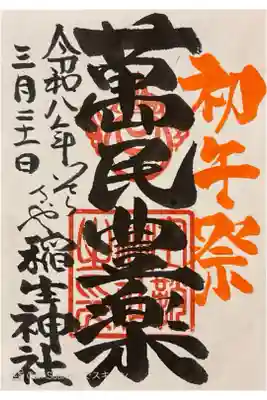 初午祭
萬民豊楽
令和八年
稲生神社
三月二十一日